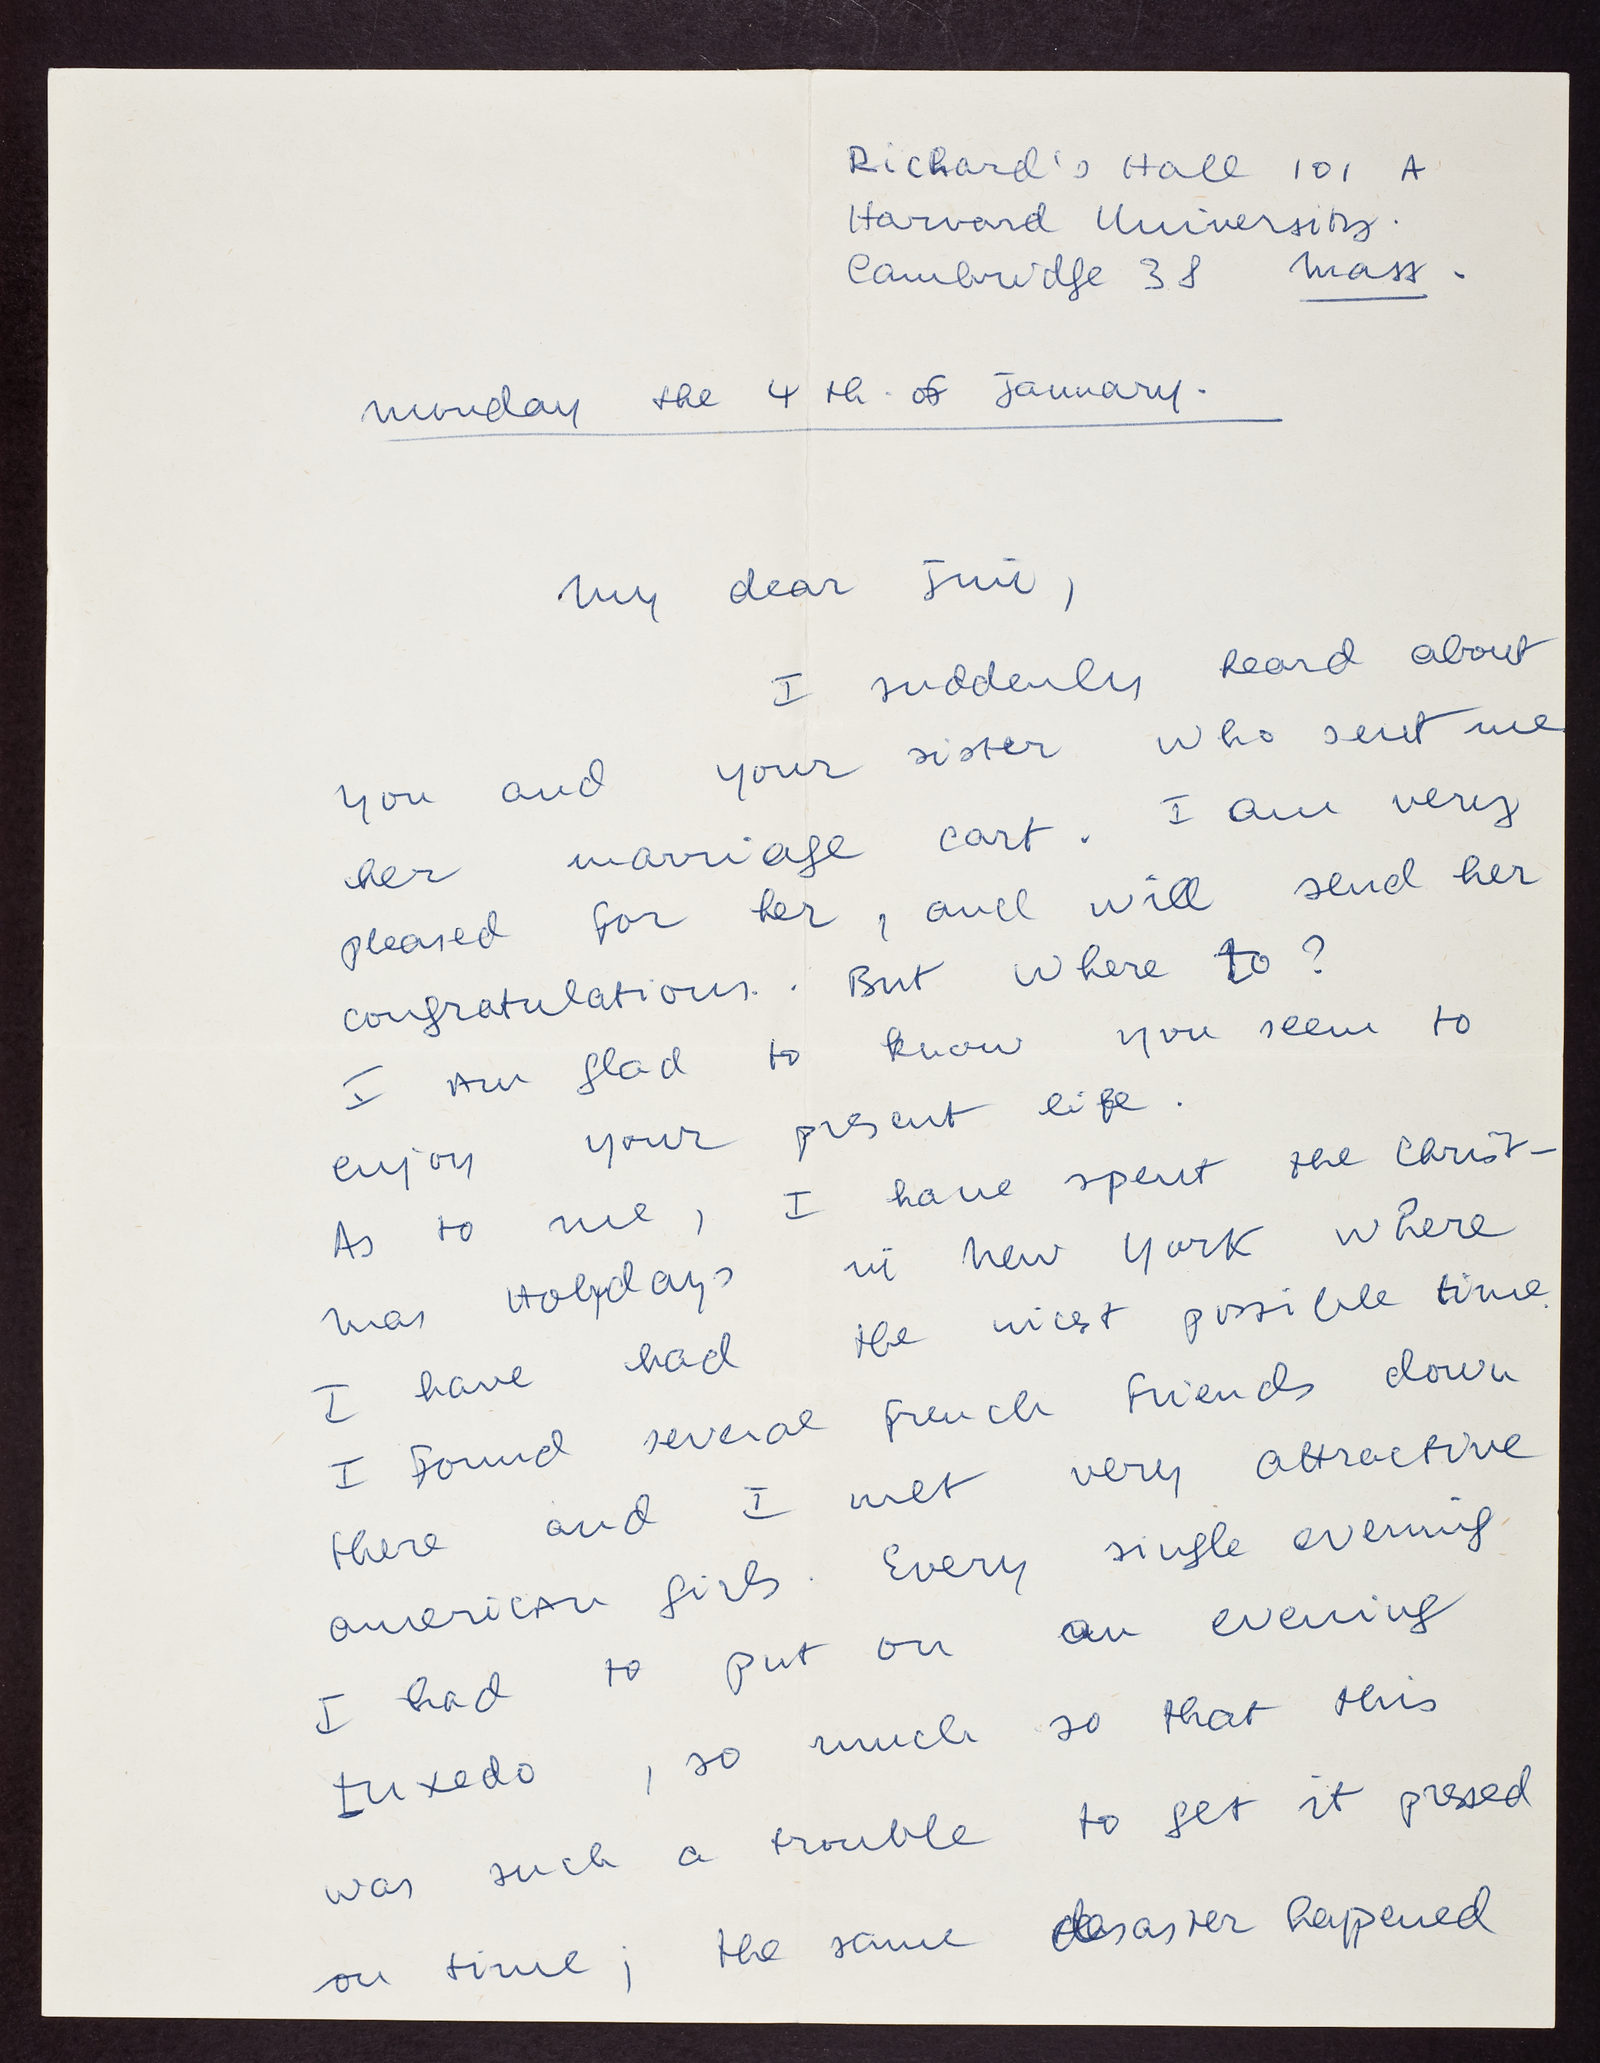 Richard's Hall 101 A
Harvard University.
Cambridge 38 Mass.
Monday the 4 th. of January.
My dear Jim,
I suddenly heard about
you and your sister who sent me
her marriage cart. I am very
pleased for her, and will send her
congratulations. But where to?
I am glad to know you seem to
enjoy your present life.
As to me, I have spent the Christ-
mas Holydays in New York where
I have had the nicest possible time.
I found several french friends down
there and I met very attractive
american girls. Every single evening
I had to put on an evening
tuxedo, so much so that this
was such a trouble to get it pressed
on time; the same desaster happened